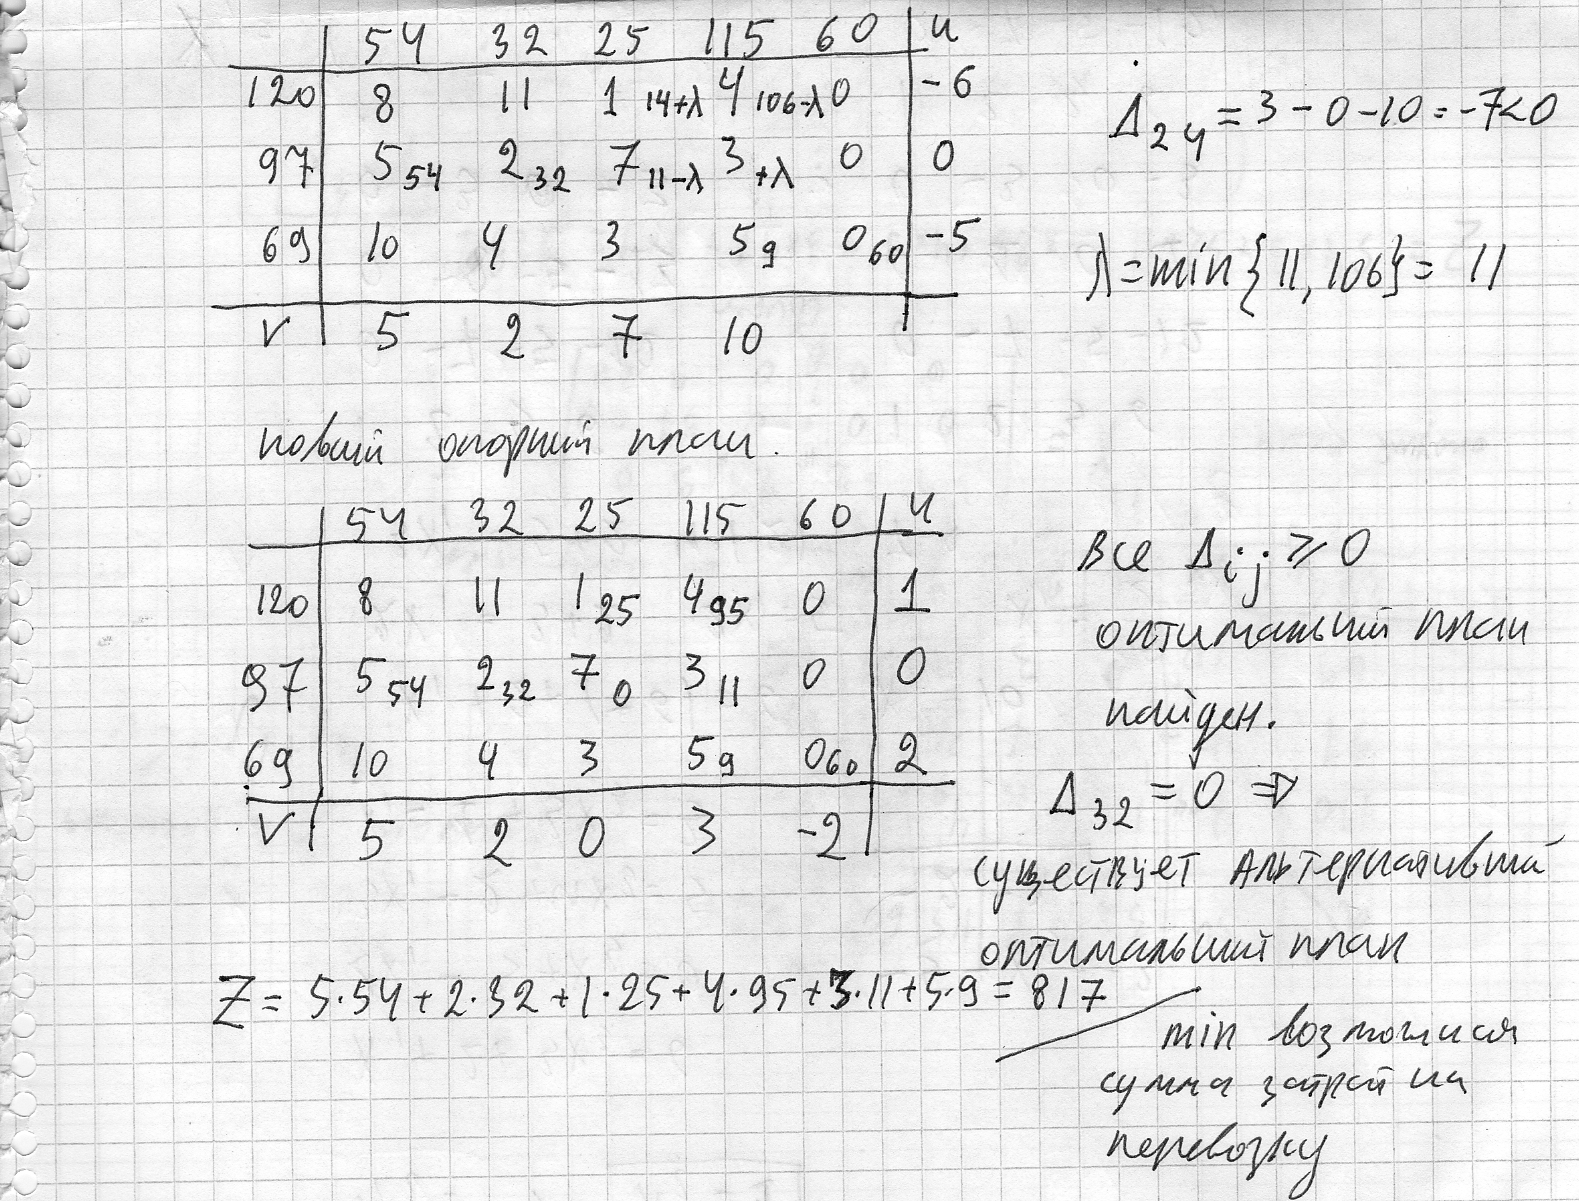 54 32 25 115 60 u
120 8 11 1 14+λ 4 106-λ 0 -6
97 5 54 2 32 7 11-λ 3 +λ 0 0
69 10 4 3 5 9 0 60 -5
V 5 2 7 10
Δ24 = 3 - 0 - 10 = -7 < 0
λ = min{11, 106} = 11
новый опорный план.
54 32 25 115 60 u
120 8 11 1 25 4 95 0 1
97 5 54 2 32 7 0 3 11 0 0
69 10 4 3 5 9 0 60 2
V 5 2 0 3 -2
Все Δij ≥ 0
оптимальный план
найден.
Δ32 = 0 ⇒
существует Альтернативный
оптимальный план
Z = 5·54 + 2·32 + 1·25 + 4·95 + 3·11 + 5·9 = 817
min возможная
сумма затрат на
перевозку